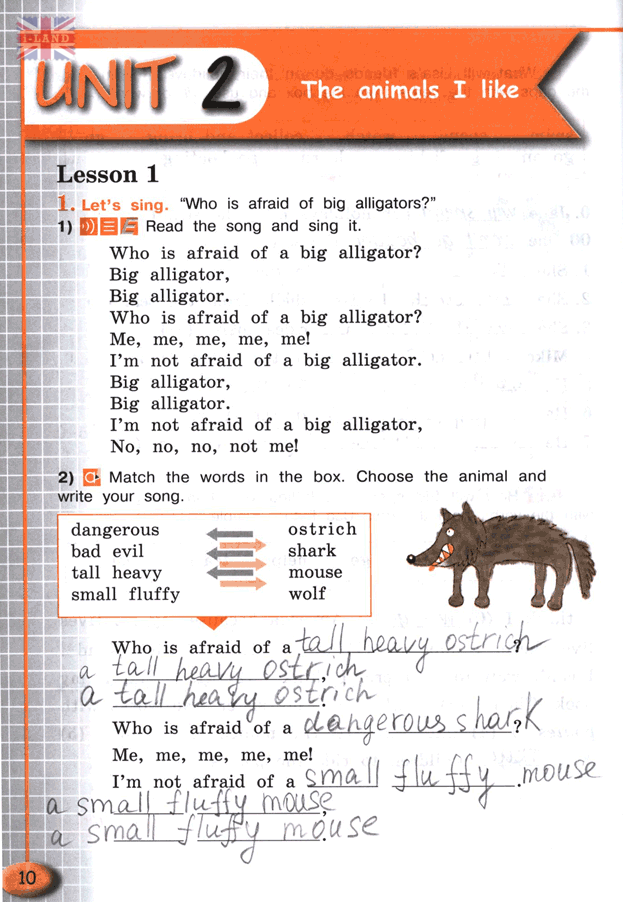 I-LAND
UNIT 2
The animals I like
Lesson 1
1. Let's sing. "Who is afraid of big alligators?"
1) Read the song and sing it.
Who is afraid of a big alligator?
Big alligator,
Big alligator.
Who is afraid of a big alligator?
Me, me, me, me, me!
I'm not afraid of a big alligator.
Big alligator,
Big alligator.
I'm not afraid of a big alligator,
No, no, no, not me!
2) Match the words in the box. Choose the animal and
write your song.
dangerous ostrich
bad evil shark
tall heavy mouse
small fluffy wolf
Who is afraid of a tall heavy ostrich?
a tall heavy ostrich,
a tall heavy ostrich.
Who is afraid of a dangerous shark?
Me, me, me, me, me!
I'm not afraid of a small fluffy mouse.
a small fluffy mouse,
a small fluffy mouse.
10